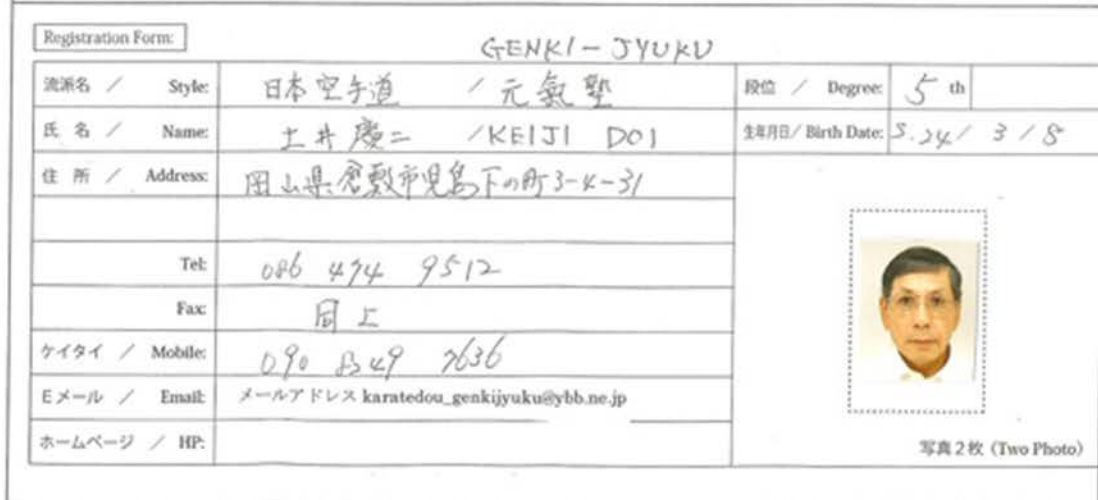 Registration Form:
GENKI-JYUKU
流派名 / Style: 日本空手道 / 元氣塾 段位 / Degree: 5 th
氏 名 / Name: 土井慶二 / KEIJI DOI 生年月日 / Birth Date: S.24 / 3 / 8
住 所 / Address: 岡山県倉敷市児島下の町3-4-31
Tel: 086 474 9512
Fax: 同上
ケイタイ / Mobile: 090 8349 7636
Eメール / Email: メールアドレス karatedou_genkijyuku@ybb.ne.jp
ホームページ / HP:
写真2枚 (Two Photo)